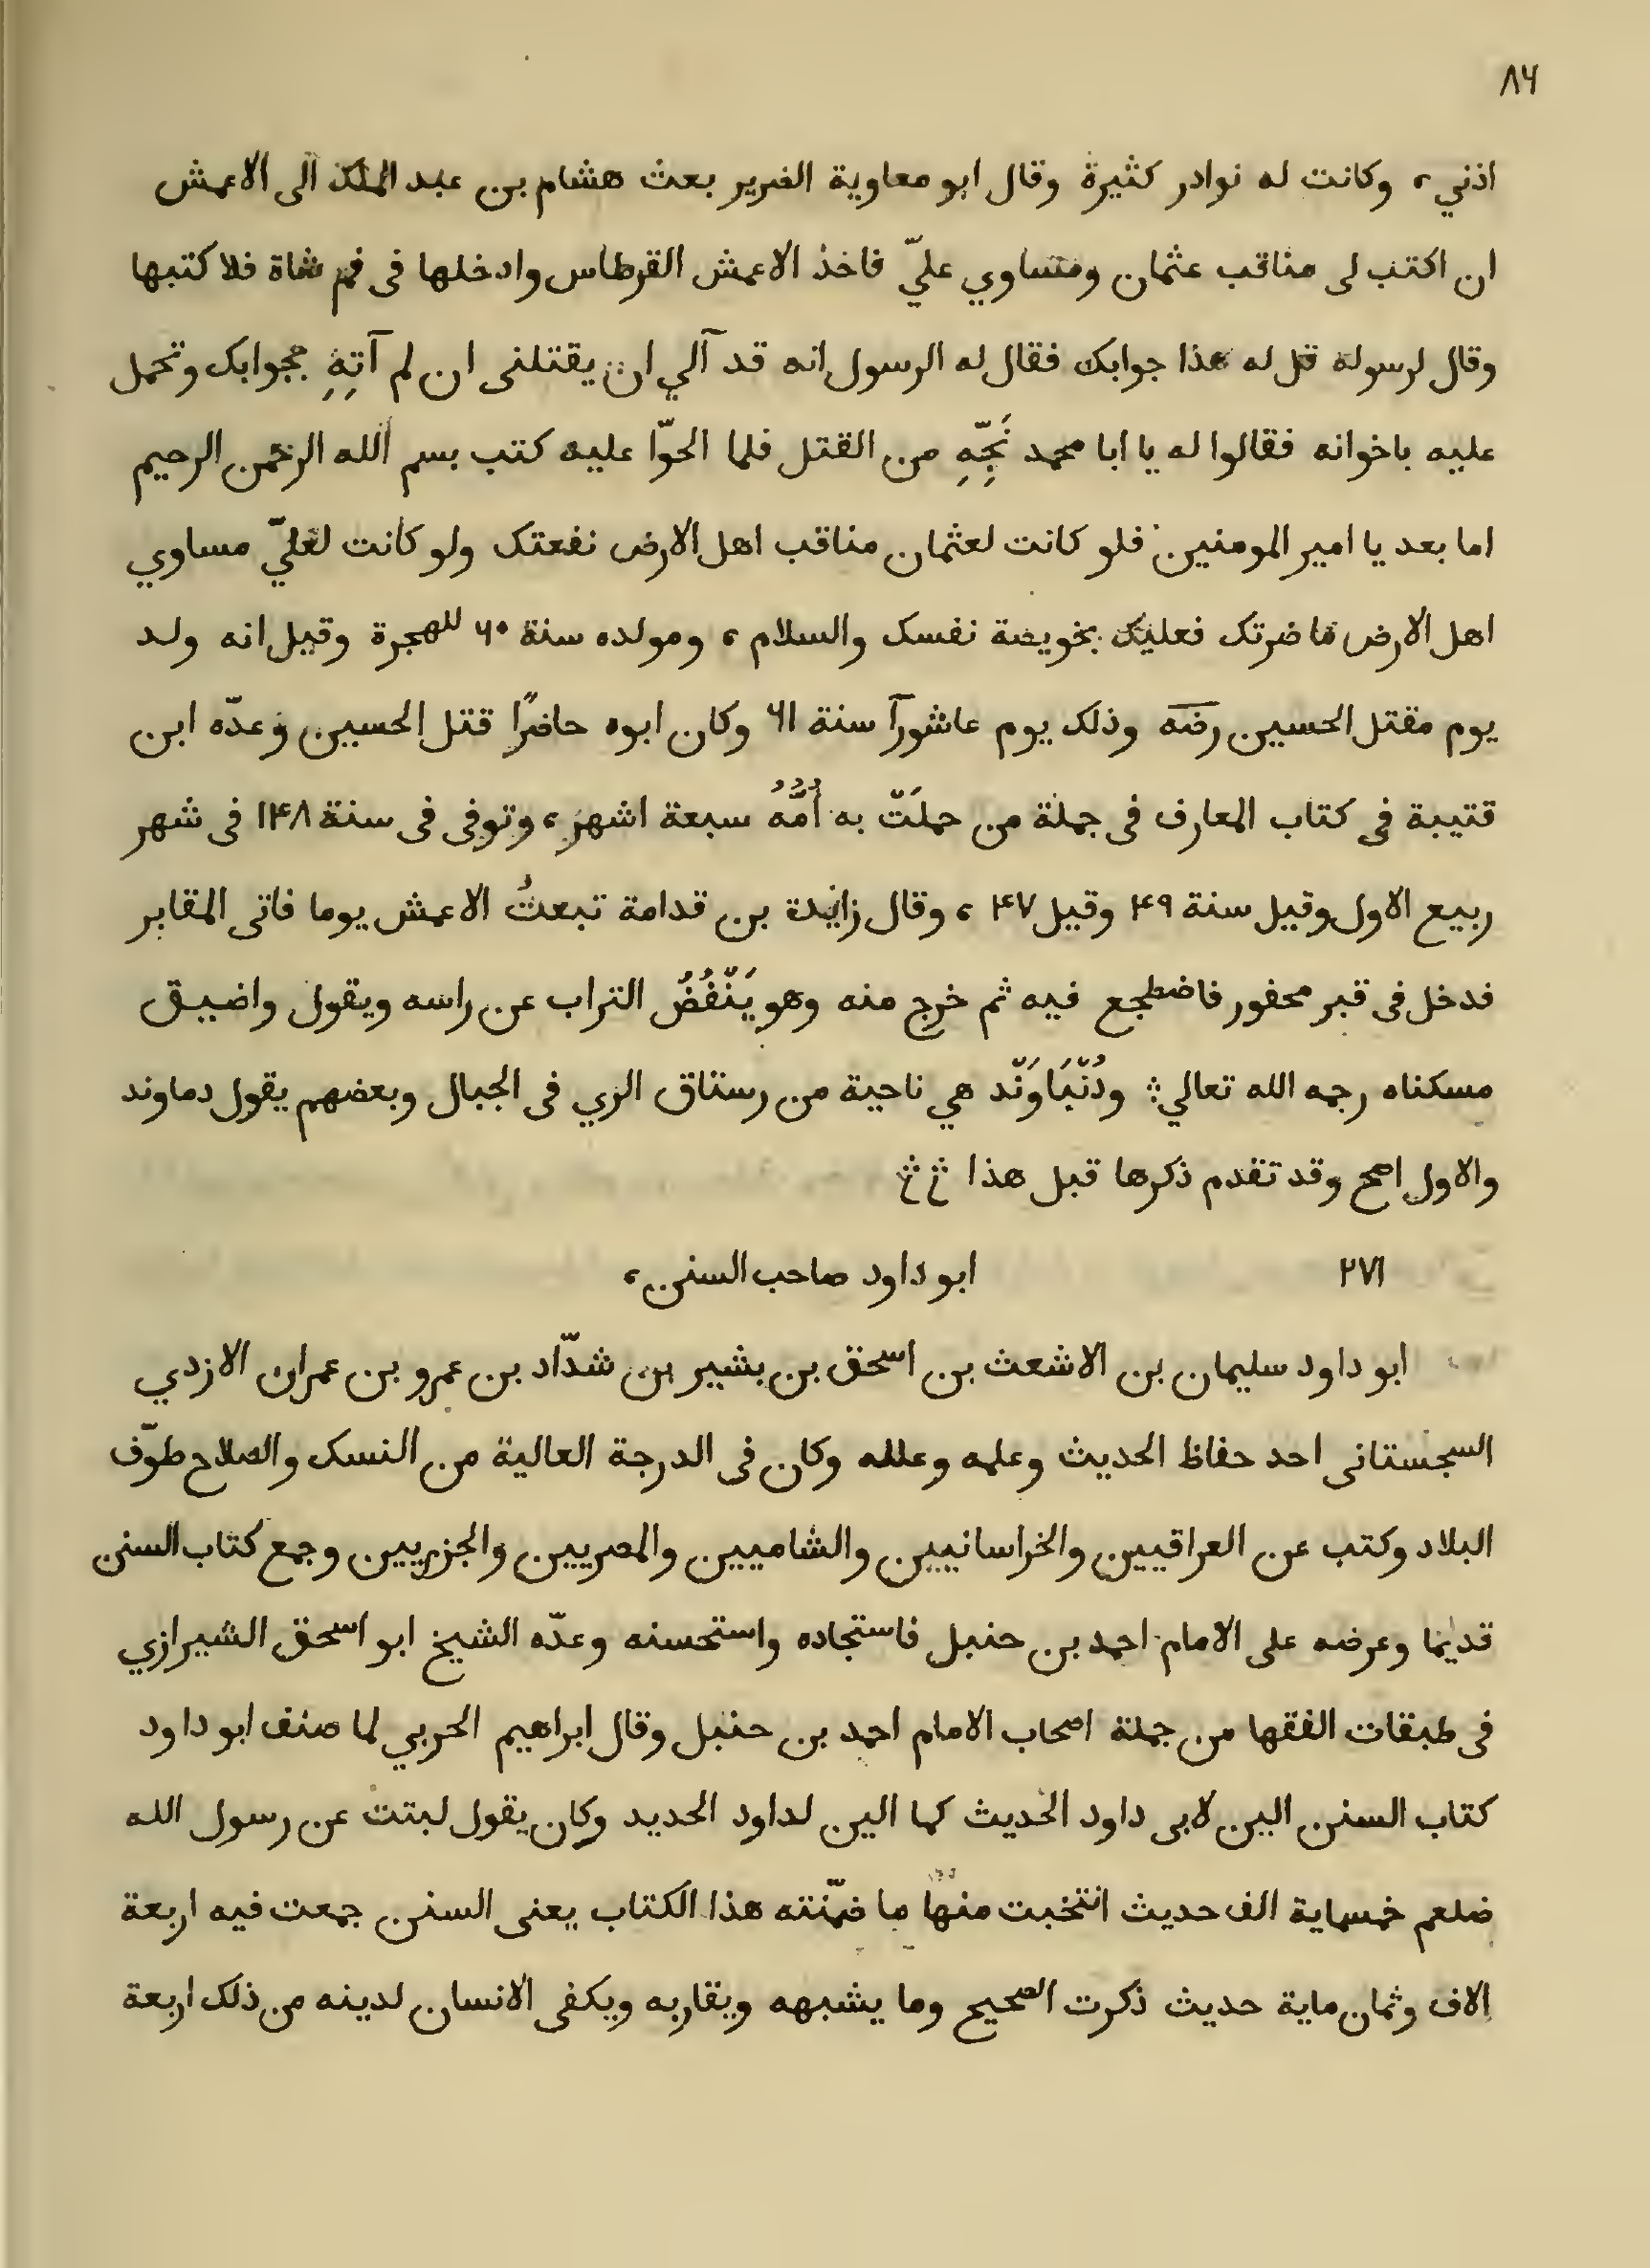 ٨٦
اذني، وكانت له نوادر كثيرة وقال ابو معاوية الضرير بعث هشام بن عبد الملك الى الاعمش
ان اكتب لى مناقب عثمان ومساوي عليّ فاخذ الاعمش القرطاس وادخلها فى فم شاة فلاكتبها
وقال لرسوله قل له هذا جوابك فقال له الرسول انه قد آلي ان يقتلنى ان لم آتِهِ بجوابك وتحمل
عليه باخوانه فقالوا له يا ابا محمد نَجِّهِ من القتل فلما الحوّا عليه كتب بسم الله الرحمن الرحيم
اما بعد يا امير المومنين فلو كانت لعثمان مناقب اهل الارض نفعتك ولو كانت لعليّ مساوي
اهل الارض ما ضرتك فعليك بخويصة نفسك والسلام، ومولده سنة ٦٠ للهجرة وقيل انه ولد
يوم مقتل الحسين رضه وذلك يوم عاشورآ سنة ٦١ وكان ابوه حاضرًا قتل الحسين وعدّه ابن
قتيبة فى كتاب المعارف فى جملة من حملَتْ به أُمُّهُ سبعة اشهر، وتوفى فى سنة ١۴٨ فى شهر
ربيع الاول وقيل سنة ۴٩ وقيل ۴٧، وقال زايدة بن قدامة تبعتُ الاعمش يوما فاتى المقابر
فدخل فى قبر محفور فاضطجع فيه ثم خرج منه وهو يَنْفُضُ التراب عن راسه ويقول واضيق
مسكناه رحمه الله تعالي؛ ودُنْبَاوَنْد هي ناحية من رستاق الري فى الجبال وبعضهم يقول دماوند
والاول اصح وقد تقدم ذكرها قبل هذا
٢٧١ ابو داود صاحب السنن،
ابو داود سليمان بن الاشعث بن اسحق بن بشير بن شدّاد بن عمرو بن عمران الازدي
السجستانى احد حفاظ الحديث وعلمه وعلله وكان فى الدرجة العالية من النسك والصلاح طوّف
البلاد وكتب عن العراقيين والخراسانيين والشاميين والمصريين والجزريين وجمع كتاب السنن
قديما وعرضه على الامام احمد بن حنبل فاستجاده واستحسنه وعدّه الشيخ ابو اسحق الشيرازي
فى طبقات الفقها من جملة اصحاب الامام احمد بن حنبل وقال ابراهيم الحربي لما صنف ابو داود
كتاب السنن الين لابى داود الحديث كما الين لداود الحديد وكان يقول لبتت عن رسول الله
ضلعم خمسماية الف حديث انتخبت منها ما ضمّنته هذا الكتاب يعنى السنن جمعت فيه اربعة
الاف وثمان ماية حديث ذكرت الصحيح وما يشبهه ويقاربه ويكفى الانسان لدينه من ذلك اربعة